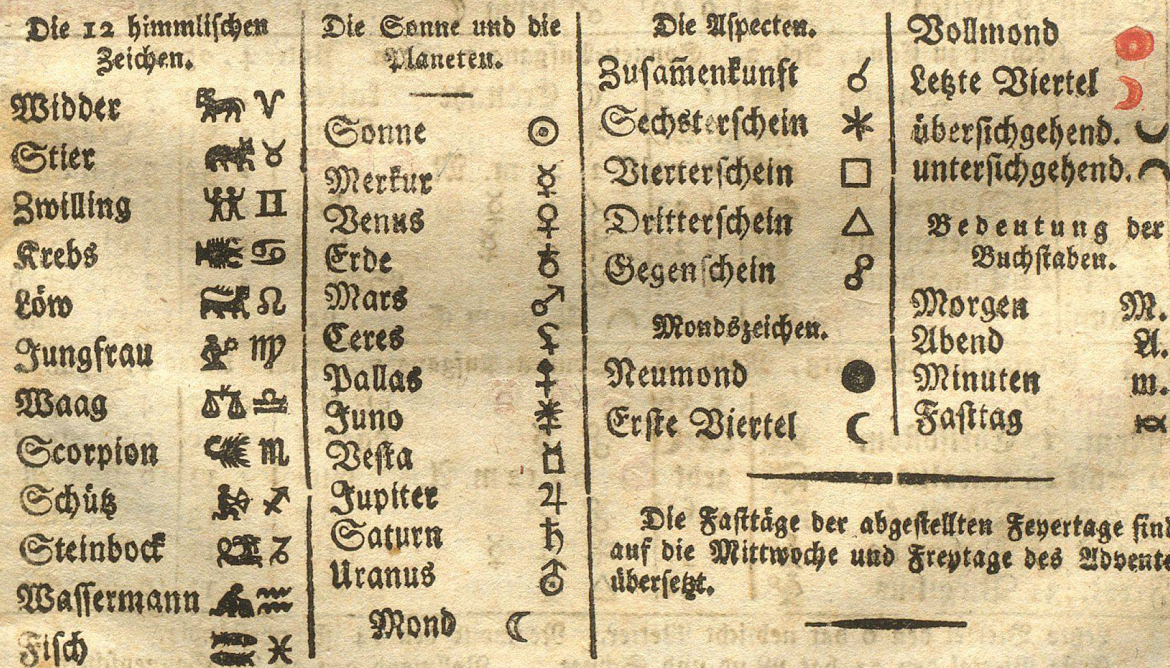 Die 12 himmlischen
Zeichen.
Widder ♈
Stier ♉
Zwilling ♊
Krebs ♋
Löw ♌
Jungfrau ♍
Waag ♎
Scorpion ♏
Schütz ♐
Steinbock ♑
Wassermann ♒
Fisch ♓
Die Sonne und die
Planeten.
Sonne ☉
Merkur ☿
Venus ♀
Erde ♁
Mars ♂
Ceres ⚳
Pallas ⚴
Juno ⚵
Vesta ⚶
Jupiter ♃
Saturn ♄
Uranus ⛢
Mond ☾
Die Aspecten.
Zusam̄enkunft ☌
Sechsterschein ⚹
Vierterschein □
Dritterschein △
Gegenschein ☍
Mondszeichen.
Neumond ●
Erste Viertel ☾
Vollmond
Letzte Viertel ☽
übersichgehend.
untersichgehend.
Bedeutung der
Buchstaben.
Morgen M.
Abend A.
Minuten m.
Fasttag
Die Fasttäge der abgestellten Feyertage sind
auf die Mittwoche und Freytage des Advents
übersetzt.